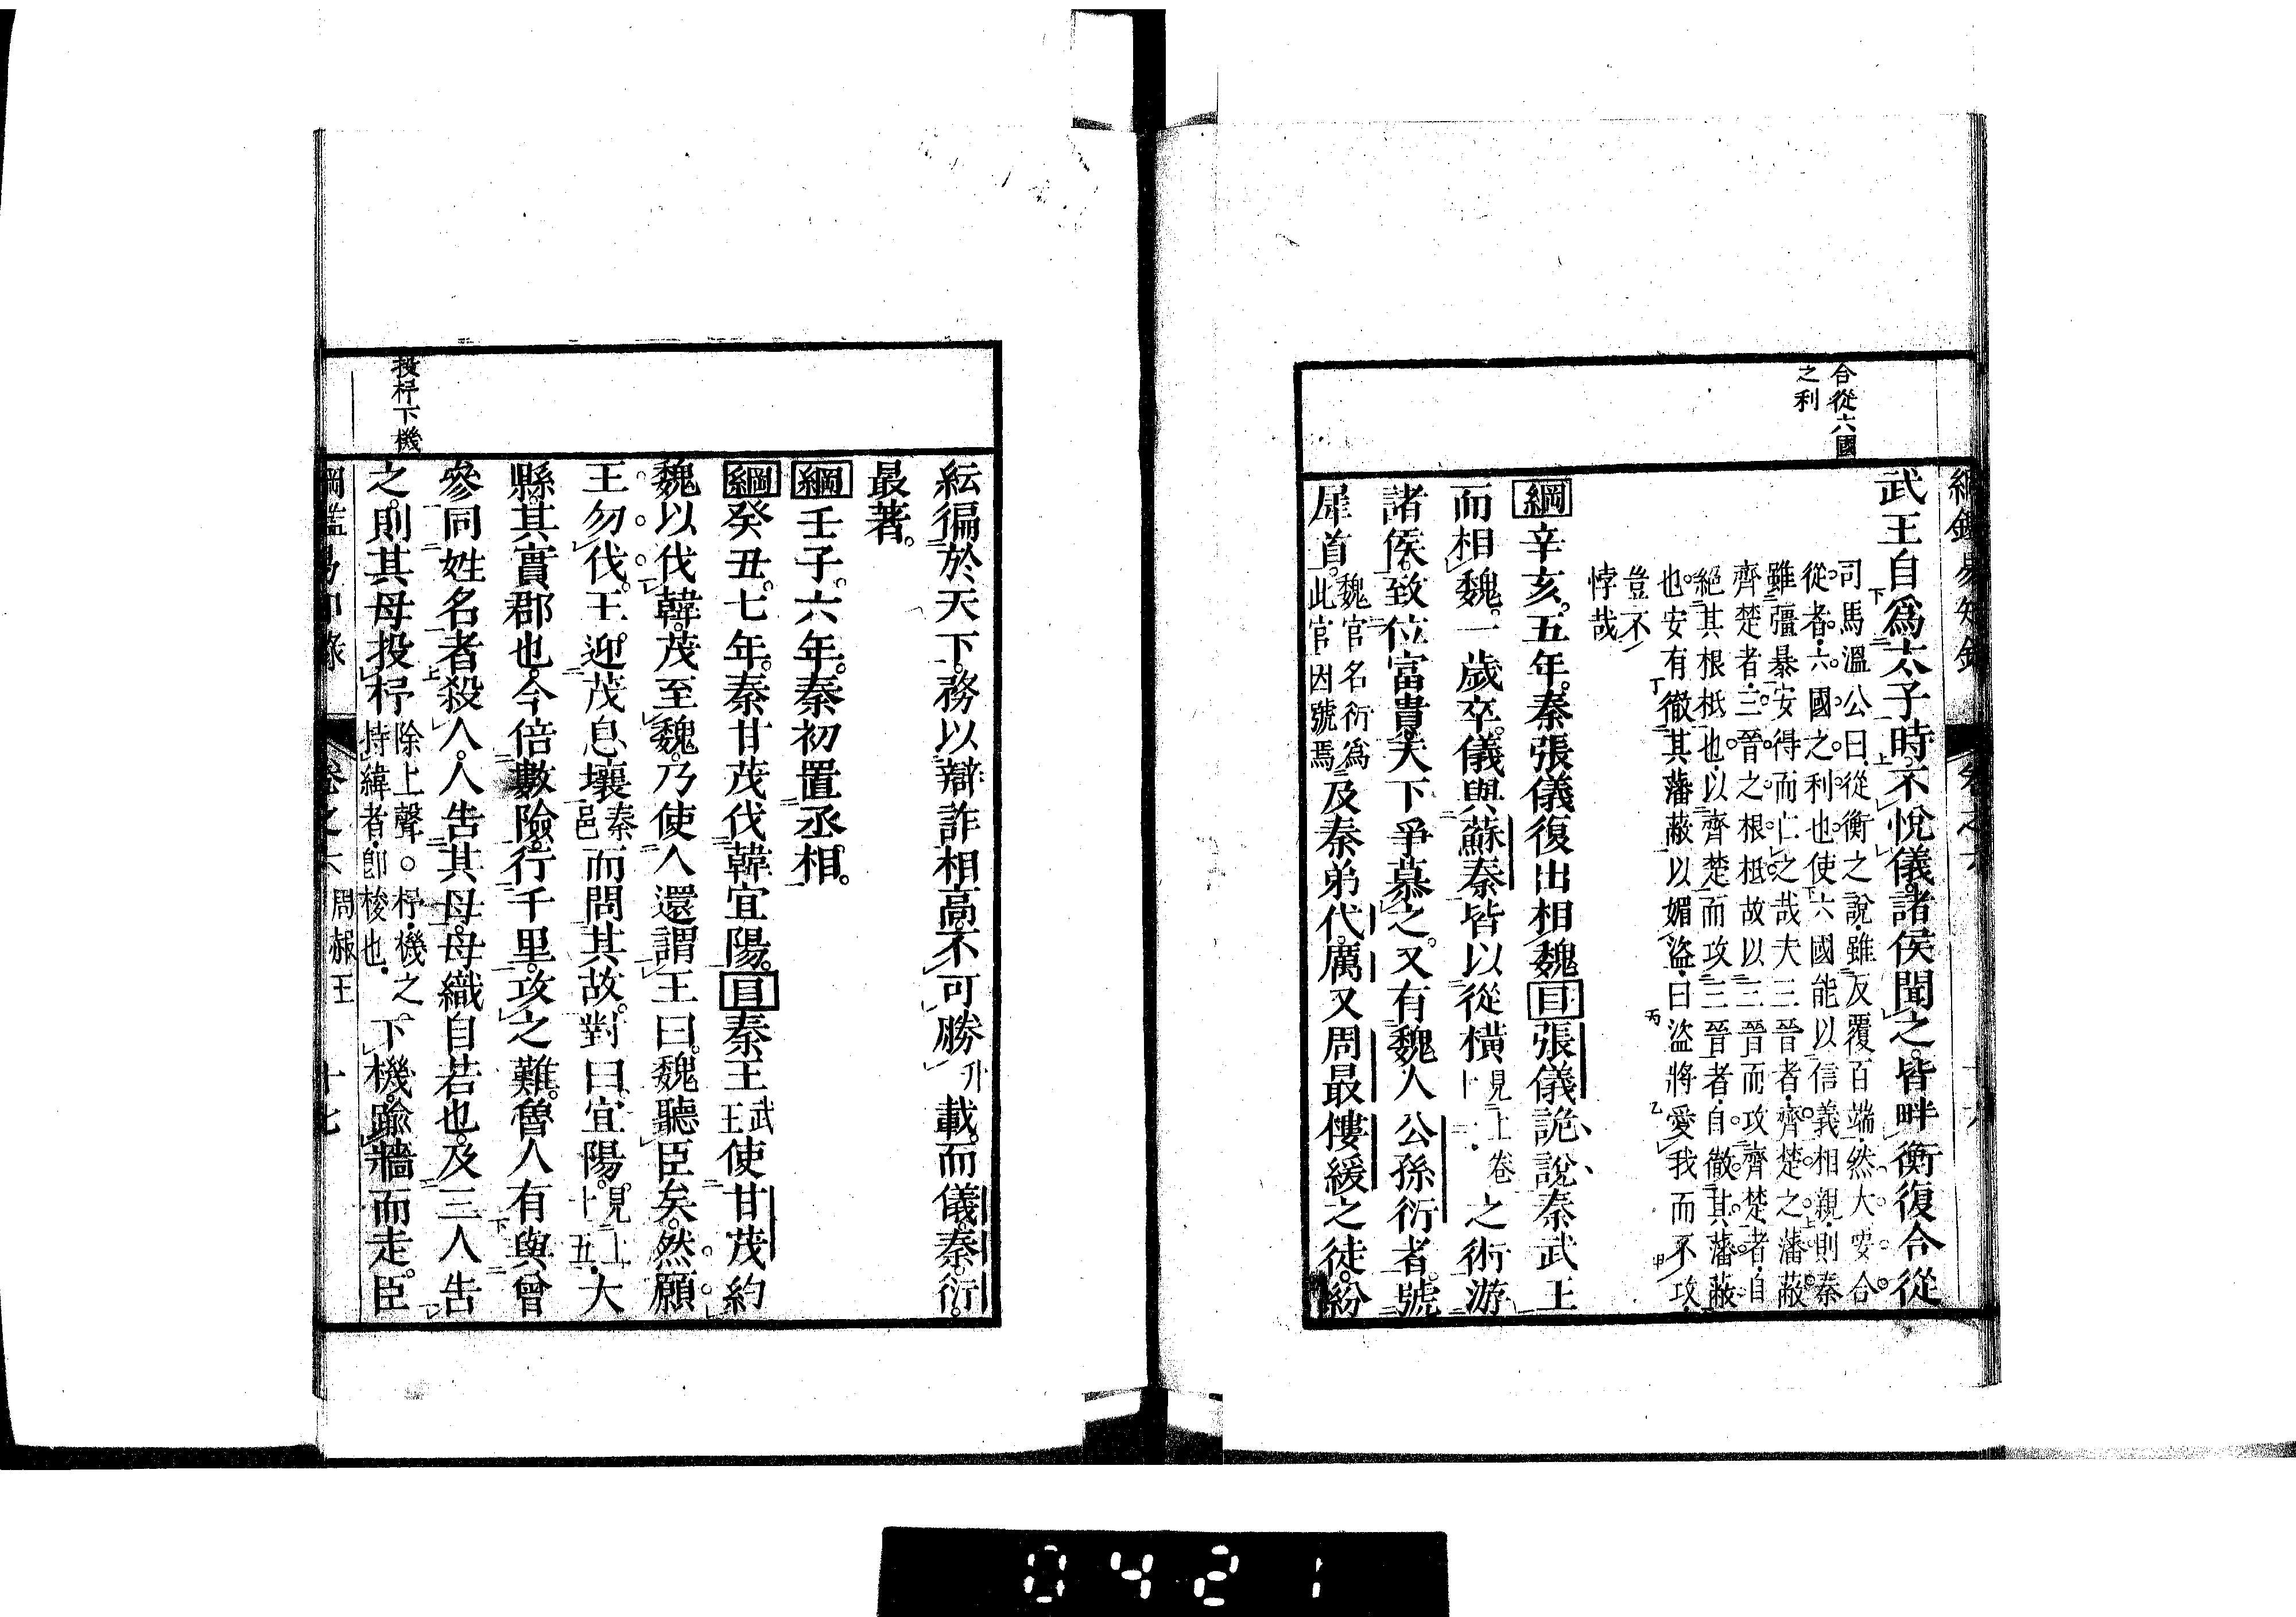 綱鑑易知錄 卷之六 十六
合從六國
之利
武王自爲太子時不悅儀諸侯聞之皆畔衡復合從
司馬溫公曰從衡之說雖反覆百端然大要合
從者六國之利也使六國能以信義相親則秦
雖彊暴安得而仁之哉夫三晉者齊楚之藩蔽
齊楚者三晉之根柢故以三晉而攻齊楚者自
絕其根柢也以齊楚而攻三晉者自徹其藩蔽
也安有徹其藩蔽以媚盜曰盜將愛我而不攻
豈不
悖哉
綱辛亥五年秦張儀復出相魏目張儀詭說秦武王
而相魏一歲卒儀與蘇秦皆以從橫見上卷十二之術游
諸侯致位富貴天下爭慕之又有魏人公孫衍者號
犀首魏官名衍爲此官因號焉及秦弟代厲又周最僂緩之徒紛
紜徧於天下務以辯詐相高不可勝升載而儀秦衍
最著
綱壬子六年秦初置丞相
綱癸丑七年秦甘茂伐韓宜陽目秦王武王使甘茂約
魏以伐韓茂至魏乃使人還謂王曰魏聽臣矣然願
王勿伐王迎茂息壤秦邑而問其故對曰宜陽見上十五大
縣其實郡也今倍數險行千里攻之難魯人有與曾
參同姓名者殺人人告其母母織自若也及三人告
投杼下機
之則其母投杼除上聲○杼機之持緯者卽梭也下機踰牆而走臣
綱鑑易知錄 卷之六 周赧王 十七
0421